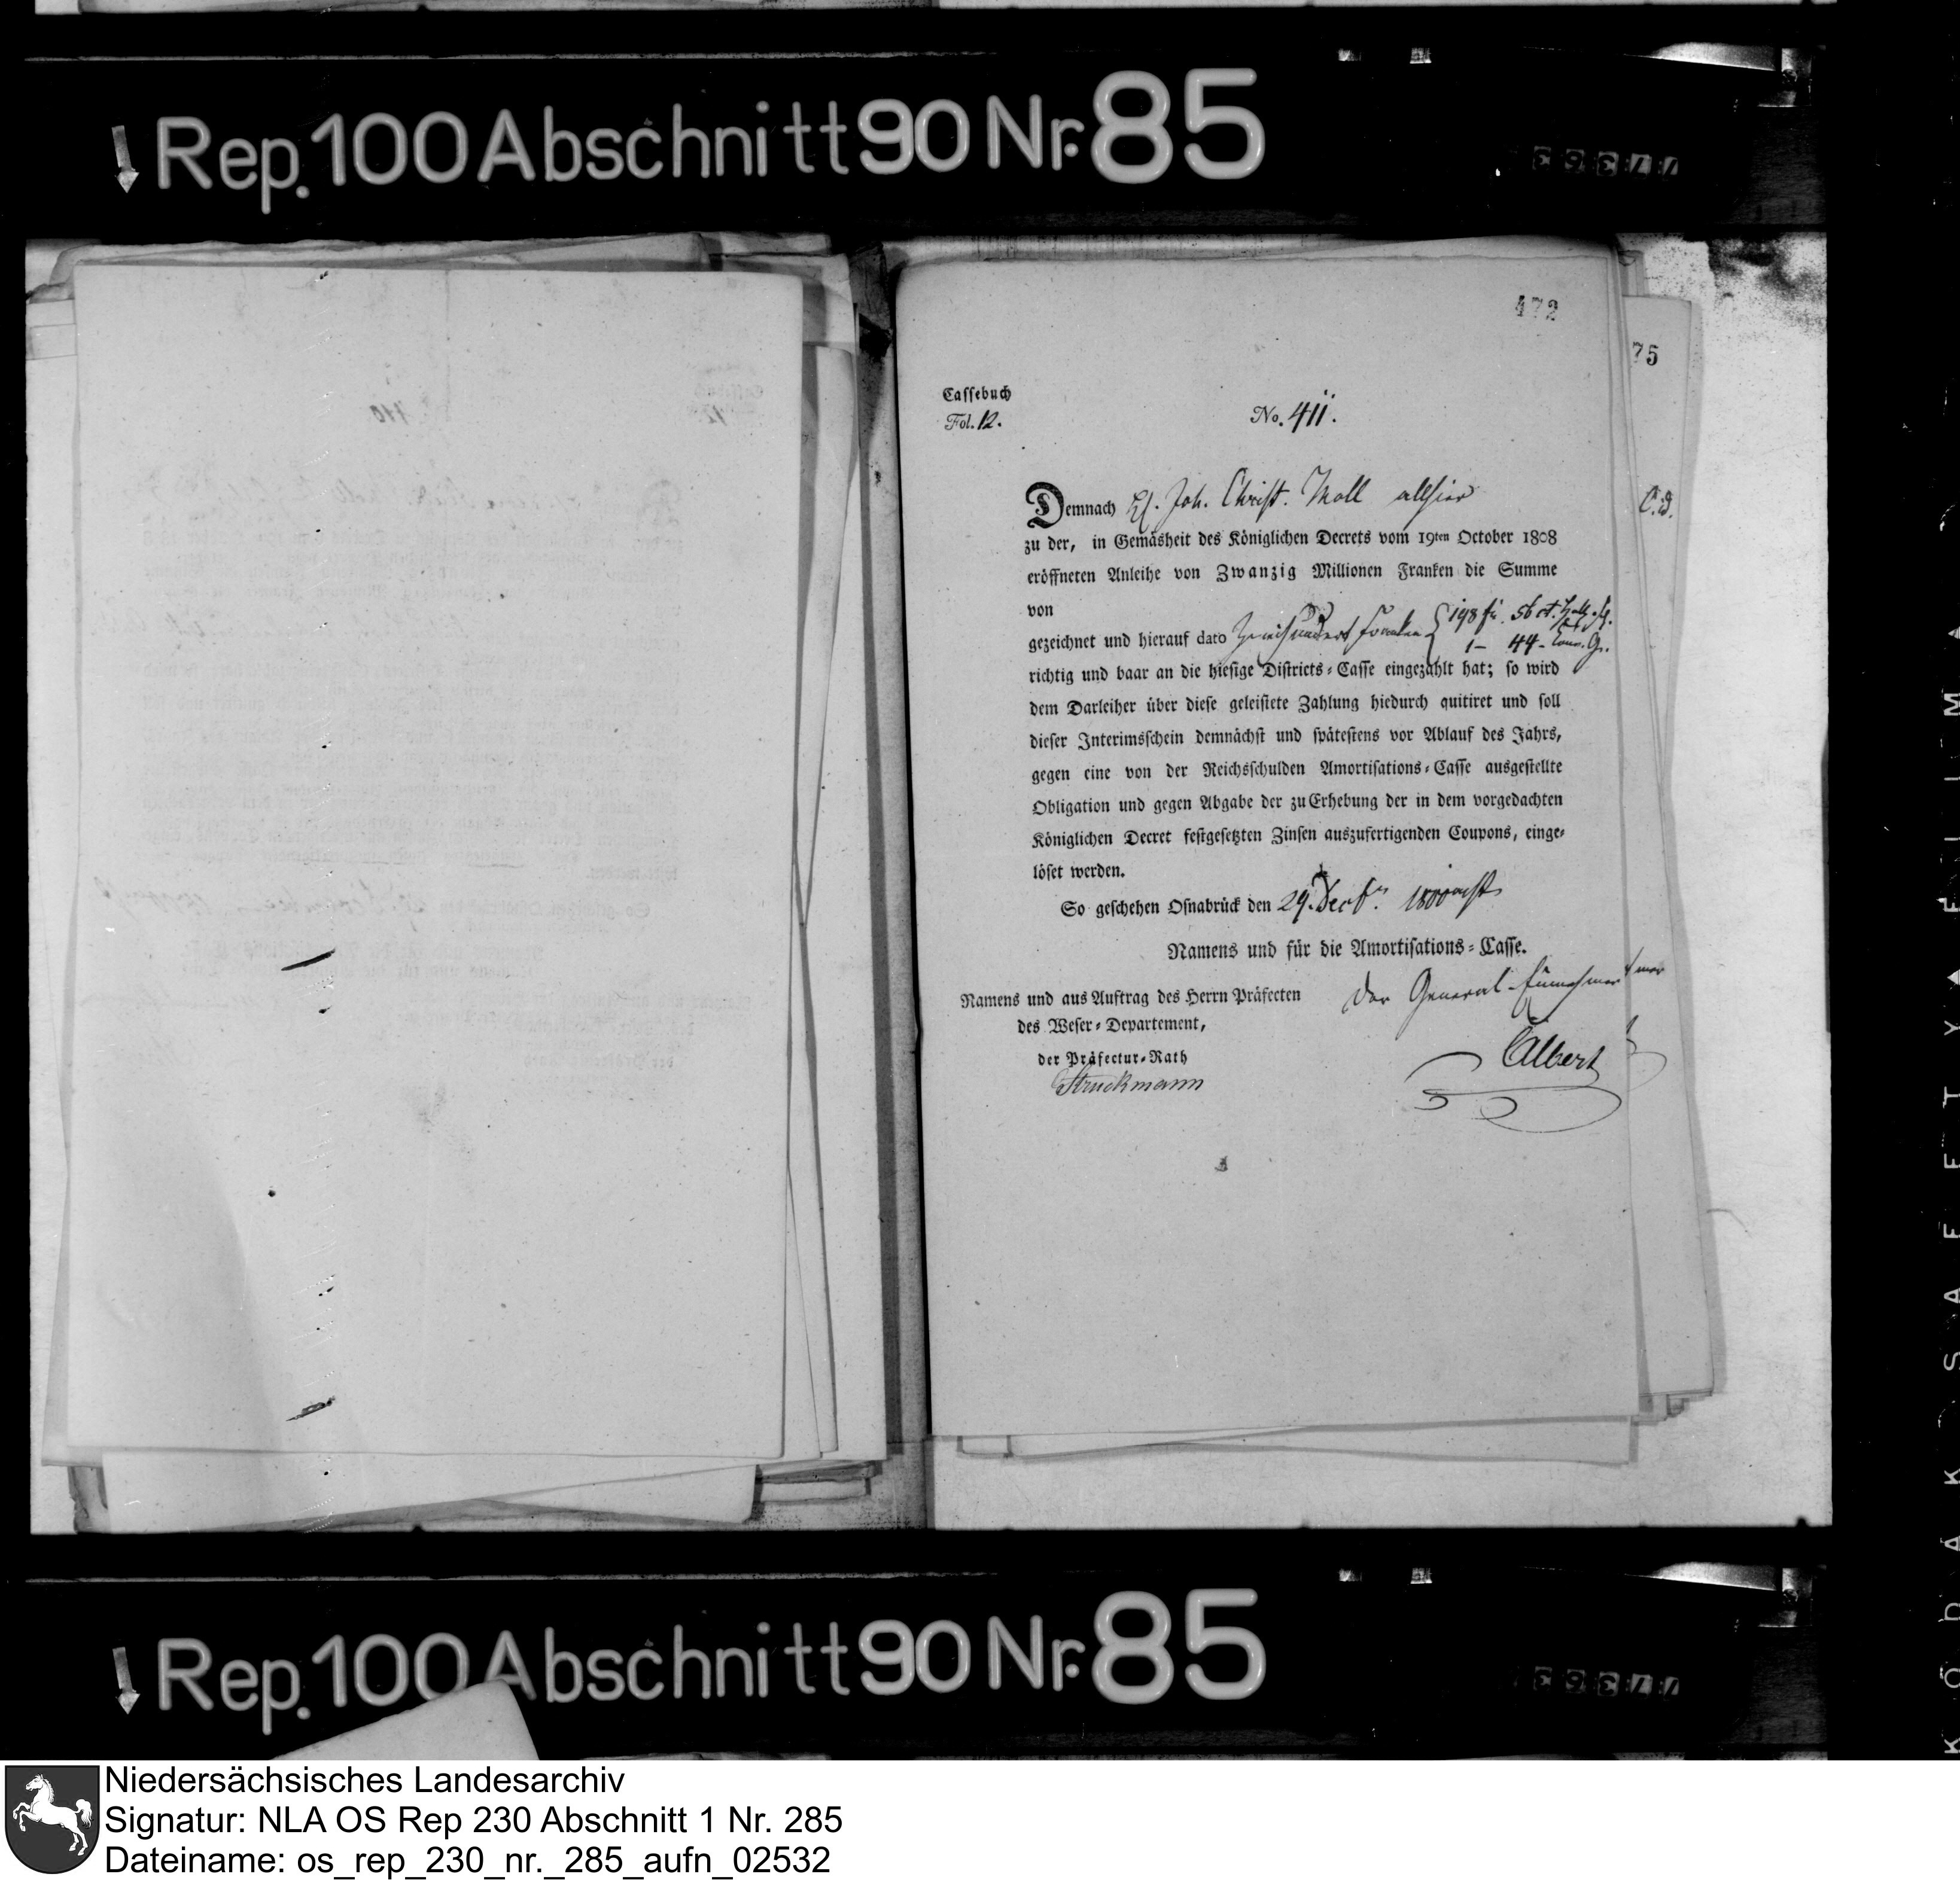 Rep. 100 Abschnitt 90 Nr. 85
472
75
Cassebuch
Fol. 12.
No. 411.
Demnach H. Joh. Christ. Moll allhier
zu der, in Gemäsheit des Königlichen Decrets vom 19ten October 1808
eröffneten Anleihe von Zwanzig Millionen Franken die Summe
von
gezeichnet und hierauf dato Zweihundert Franken { 198 fr. 56 ct.
1 – 44 –
richtig und baar an die hiesige Districts-Casse eingezahlt hat; so wird
dem Darleiher über diese geleistete Zahlung hiedurch quitiret und soll
dieser Interimsschein demnächst und spätestens vor Ablauf des Jahrs,
gegen eine von der Reichsschulden Amortisations-Casse ausgestellte
Obligation und gegen Abgabe der zu Erhebung der in dem vorgedachten
Königlichen Decret festgesetzten Zinsen auszufertigenden Coupons, einge-
löset werden.
So geschehen Osnabrück den 29. Decbr. 1800acht
Namens und für die Amortisations-Casse.
Namens und aus Auftrag des Herrn Präfecten
des Weser-Departement,
der Präfectur-Rath
Struckmann
Der General-Einnehmer
Albert
Rep. 100 Abschnitt 90 Nr. 85
Niedersächsisches Landesarchiv
Signatur: NLA OS Rep 230 Abschnitt 1 Nr. 285
Dateiname: os_rep_230_nr._285_aufn_02532